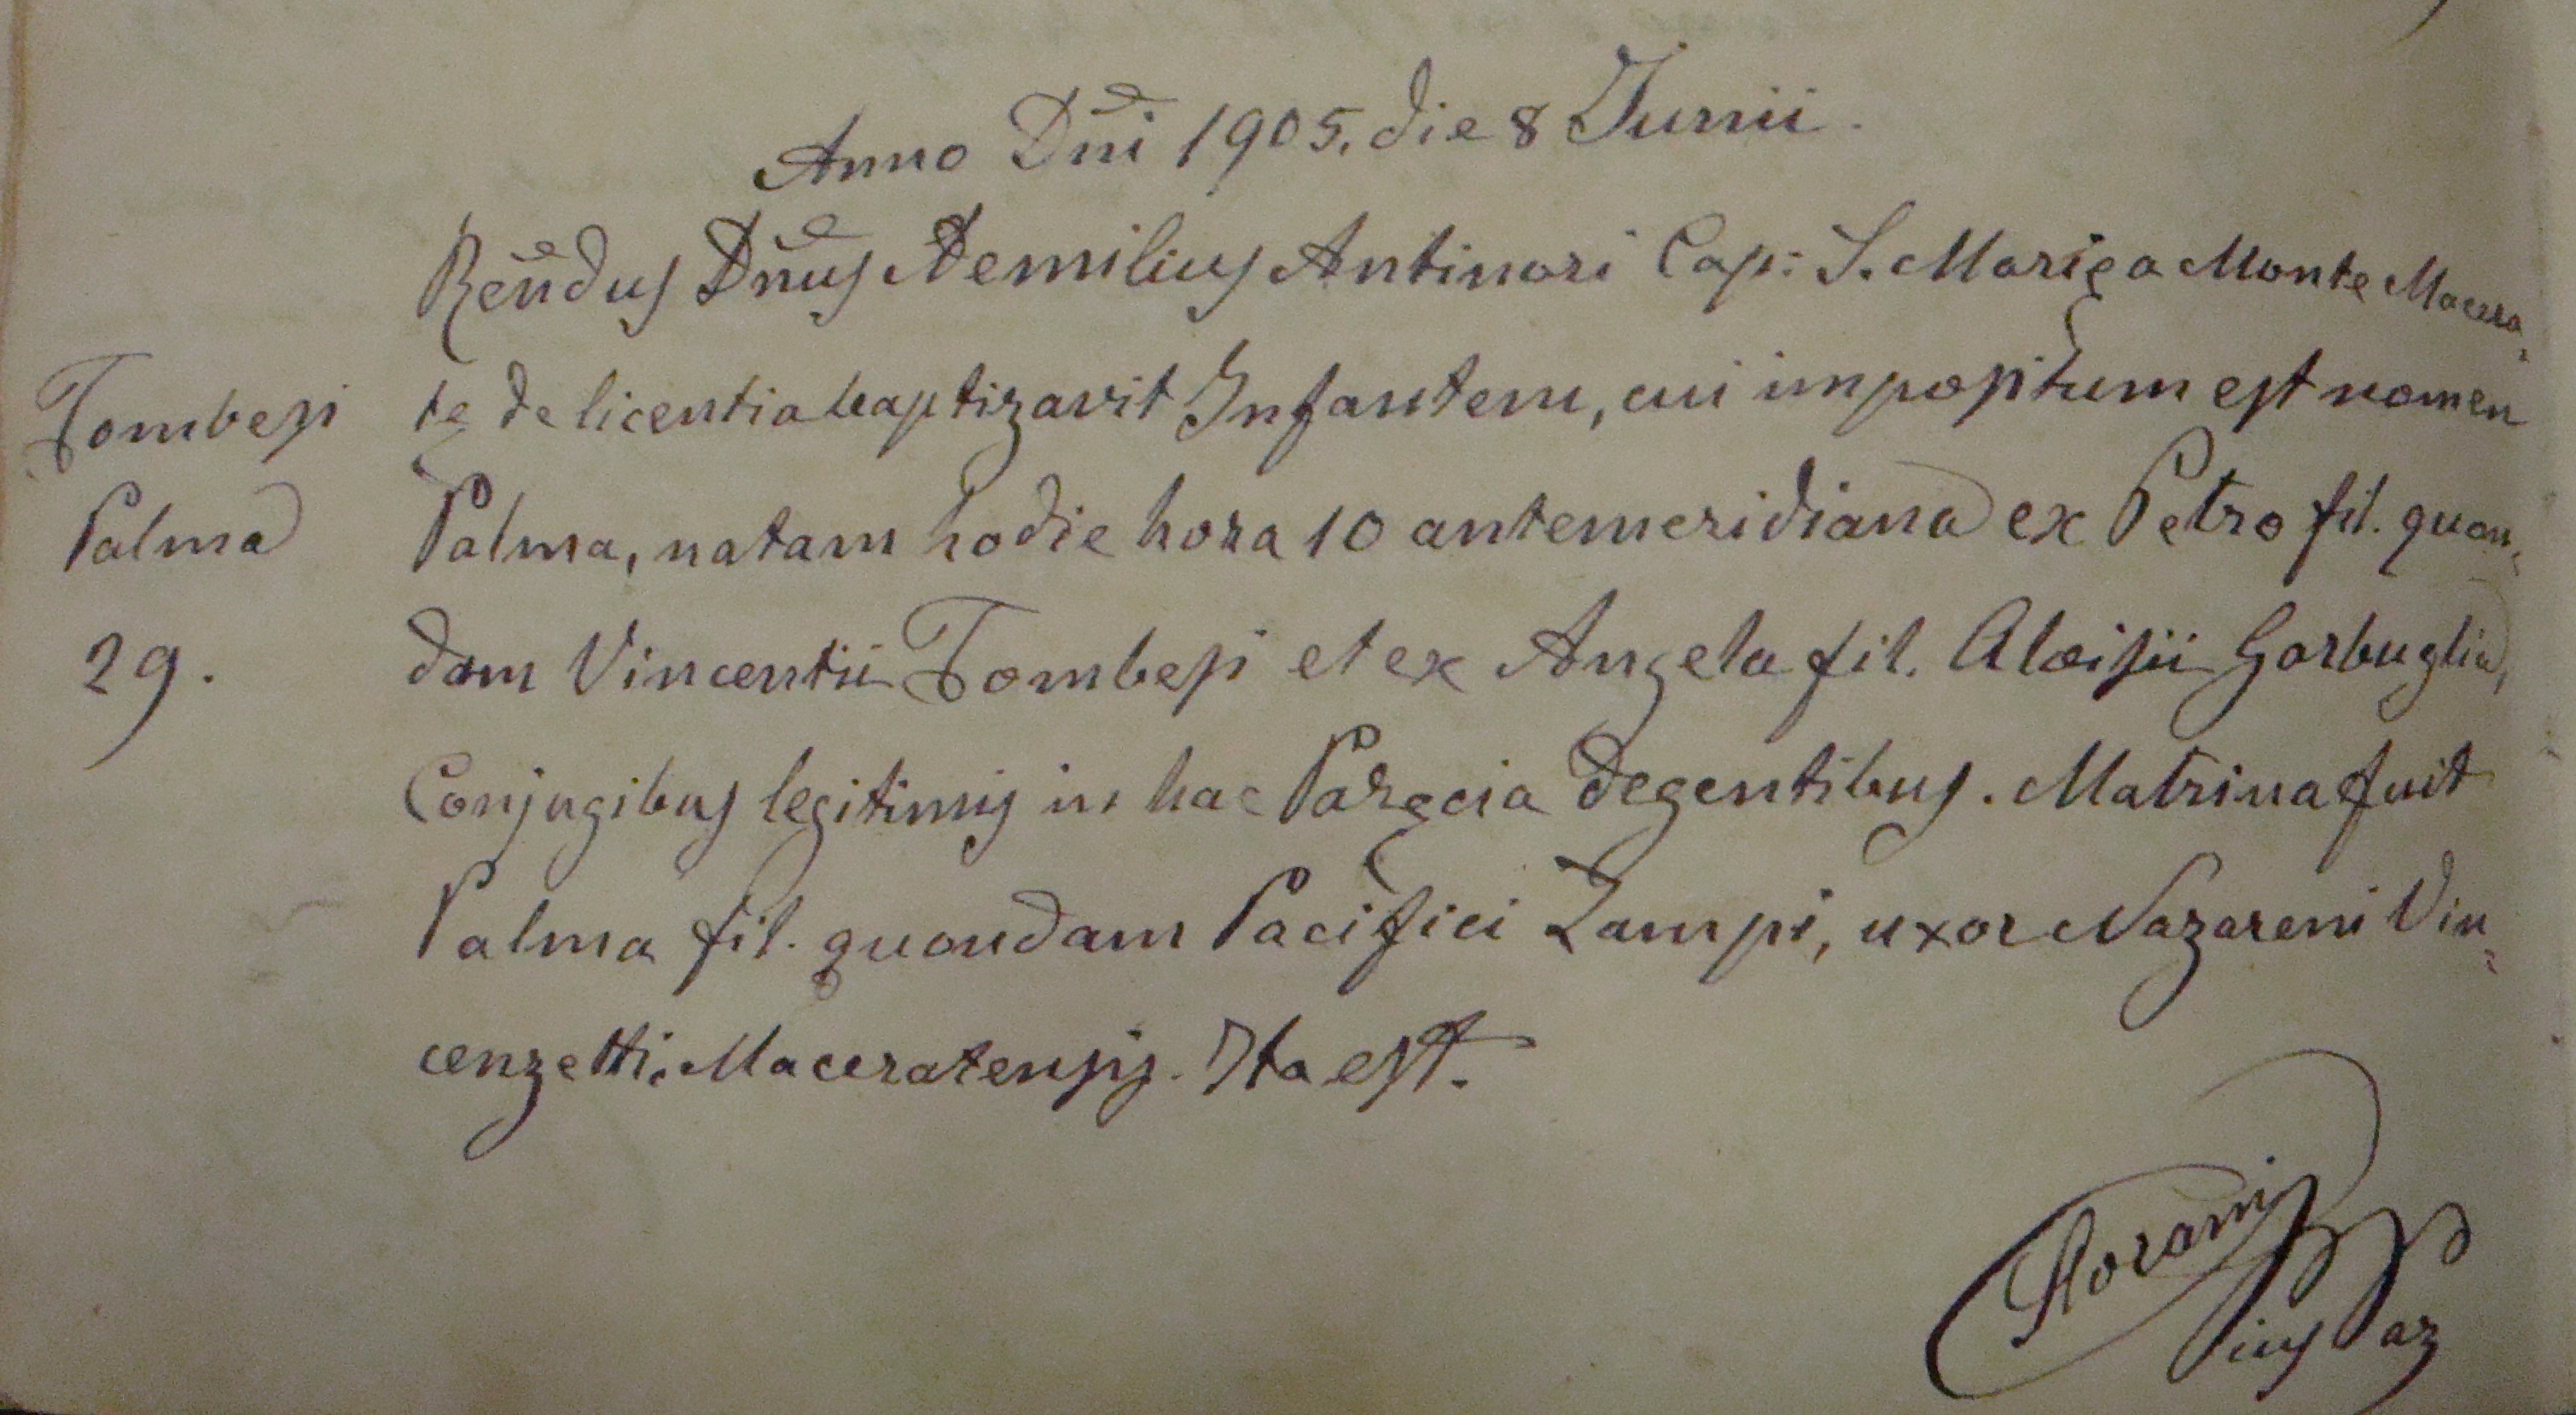 Anno Dñi 1905. die 8 Junii.
Reñdus Dñus Aemilius Antinori Cap: S. Marię a Monte Macera-
tę de licentia baptizavit Infantem, cui impositum est nomen
Tombesi
Palma
29.
Palma, natam hodie hora 10 antemeridiana ex Petro fil. quon-
dam Vincentii Tombesi et ex Angela fil. Aloisii Garbuglia,
Conjugibus legitimis in hac Paręcia degentibus. Matrina fuit
Palma fil. quondam Pacifici Lampi, uxor Nazareni Vin-
cenzetti, Maceratensis. Ita est.
Pius Par